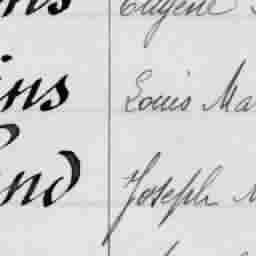 Eugène
ins Louis Ma
and Joseph